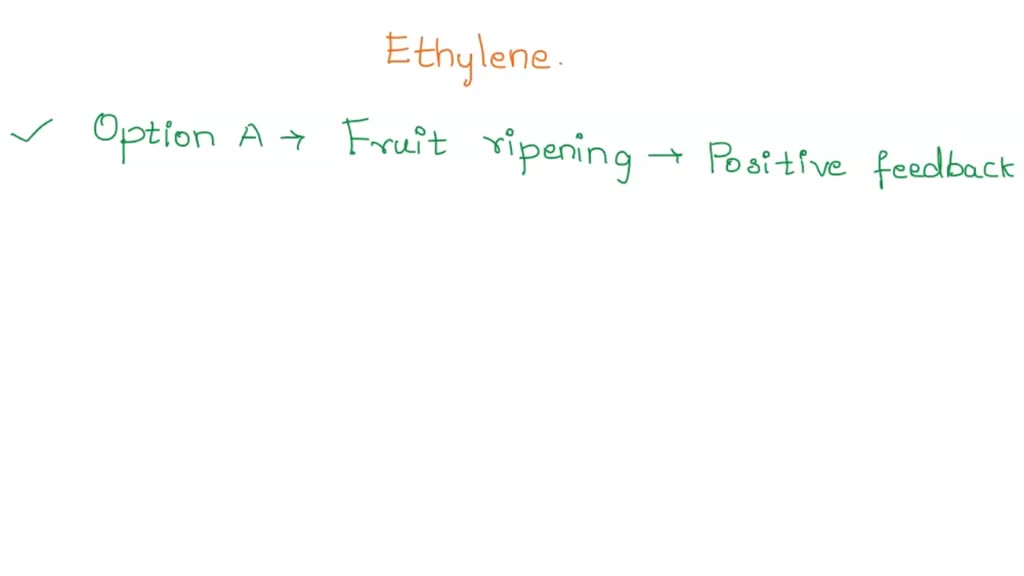 Ethylene.
✓ Option A → Fruit ripening → Positive feedback